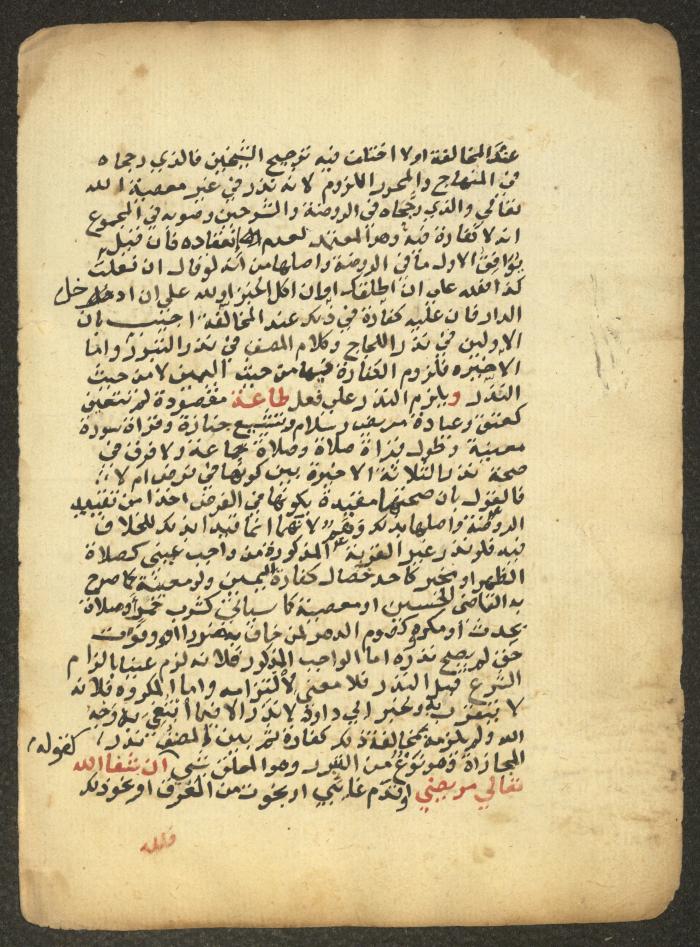 عند المخالفة اولا اختلف فيه ترجيح الشيخين فالذي رجحاه
في المنهاج والمحرر اللزوم لانه نذر في غير معصية الله
تعالي والذي رجحاه في الروضة والشرحين وصوبه في المجموع
انه لا كفارة فيه وهو المعتمد لعدم انعقاده فان قيل
يوافق الاول ما في الروضة واصلها من انه لو قال ان فعلت
كذا فلله علي ان اطلقك او ان اكل الخبز او لله علي ان ادخل
الدار فان عليه كفارة في ذلك عند المخالفة اجيب بان
الاولين في نذر اللجاج وكلام المصنف في نذر التبرر واما
الاخيره فلزوم الكفارة فيها من حيث اليمين لا من حيث
النذر ويلزم النذر علي فعل طاعة مقصودة لم تتعين
كعتق وعيادة مريض وسلام وتشييع جنازة وقراة سورة
معينة وطول قراة صلاة وصلاة جماعة ولا فرق في
صحة نذر الثلاثة الاخيرة بين كونها في فرض ام لا
فالقول بان صحتها مقيدة بكونها في الفرض اخذا من تقييد
الروضة واصلها بذلك وهم لانهما انما قيدا بذلك للخلاف
فيه فلو نذر غير القربة المذكورة من واجب عيني كصلاة
الظهر او مخير كاحد خصال كفارة اليمين ولو معينة كما صرح
به القاضي الحسين او معصية كما سياتي كشرب خمر وصلاة
بحدث او مكروه كصوم الدهر لمن خاف به ضررا او فوت
حق لم يصح نذره اما الواجب المذكور فلانه لزم عينا بالزام
الشرع قبل النذر فلا معني لالتزامه واما المكروه فلانه
لا يتقرب به ولخبر ابي داود لا نذر الا فيما ابتغي به وجه
الله ولم يلزمه بمخالفة ذلك كفارة ثم بين المصنف نذر
المجازاة وهو نوع من التبرر وهو المعلق بشي كقوله ان شفا الله
تعالي مريضي او قدم غايبي او نجوت من الغرق او نحو ذلك
فلله